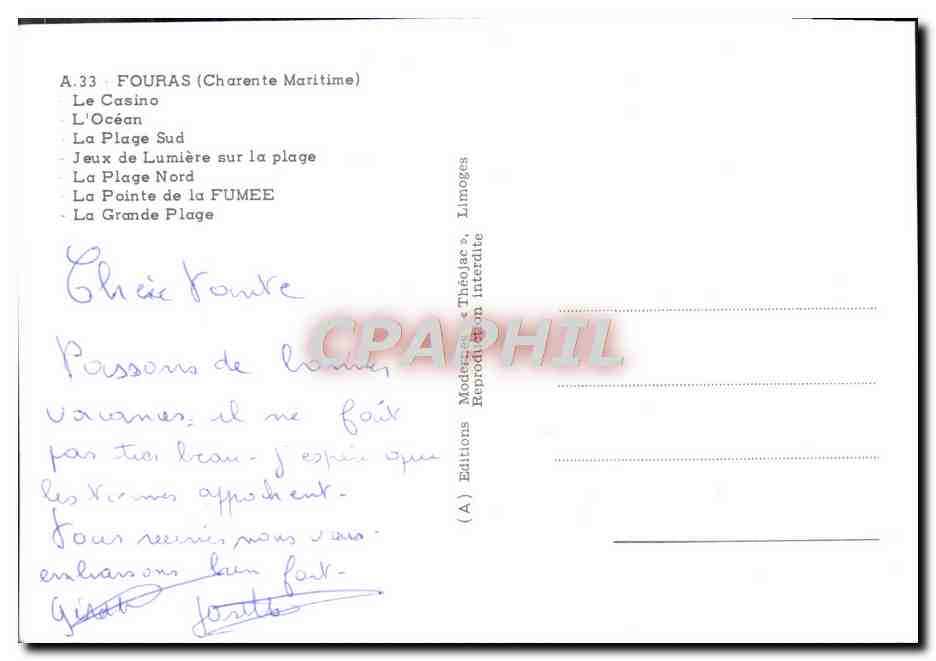 A.33 - FOURAS (Charente Maritime)
- Le Casino
- L'Océan
- La Plage Sud
- Jeux de Lumière sur la plage
- La Plage Nord
- La Pointe de la FUMEE
- La Grande Plage
Chère Tante
Passons de bonnes
vacances, il ne fait
pas très beau - j'espère que
les tiennes approchent -
Tous réunis nous vous
embrassons bien fort -
Josette
(A) Editions Modernes « Théojac », Limoges
Reproduction interdite
CPAPHIL